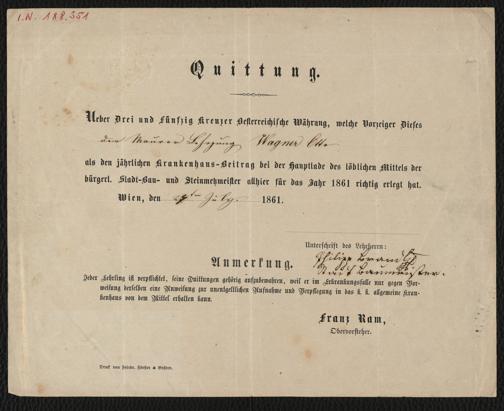 I.N. 188.351
Quittung.
Ueber Drei und Fünfzig Kreuzer Oesterreichische Währung, welche Vorzeiger Dieses
den Maurer Lehrjung Wagner Otto
als den jährlichen Krankenhaus-Beitrag bei der Hauptlade des löblichen Mittels der
bürgerl. Stadt-Bau- und Steinmetzmeister allhier für das Jahr 1861 richtig erlegt hat.
Wien, den July. 1861.
Unterschrift des Lehrherrn:
Philipp Brandt
Stadt Baumeister.
Anmerkung.
Jeder Lehrling ist verpflichtet, seine Quittungen gehörig aufzubewahren, weil er im Erkrankungsfalle nur gegen Vor-
weisung derselben eine Anweisung zur unentgeltlichen Aufnahme und Verpflegung in das k. k. allgemeine Kran-
kenhaus von dem Mittel erhalten kann.
Franz Ram,
Obervorsteher.
Druck von